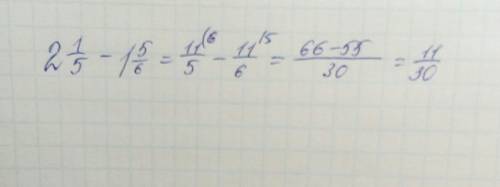 2 1/5 - 1 5/6 = 11/5 (6 - 11/6 (5 = 66-55/30 = 11/30